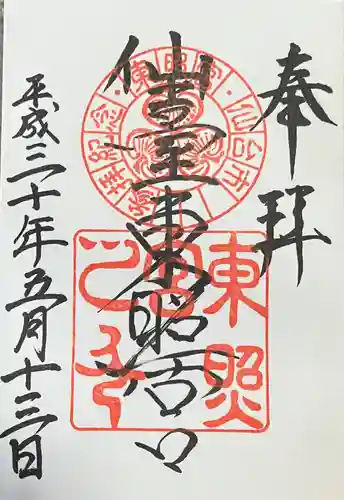 奉拝
仙台東照宮
平成三十年五月十三日
東照宮之印